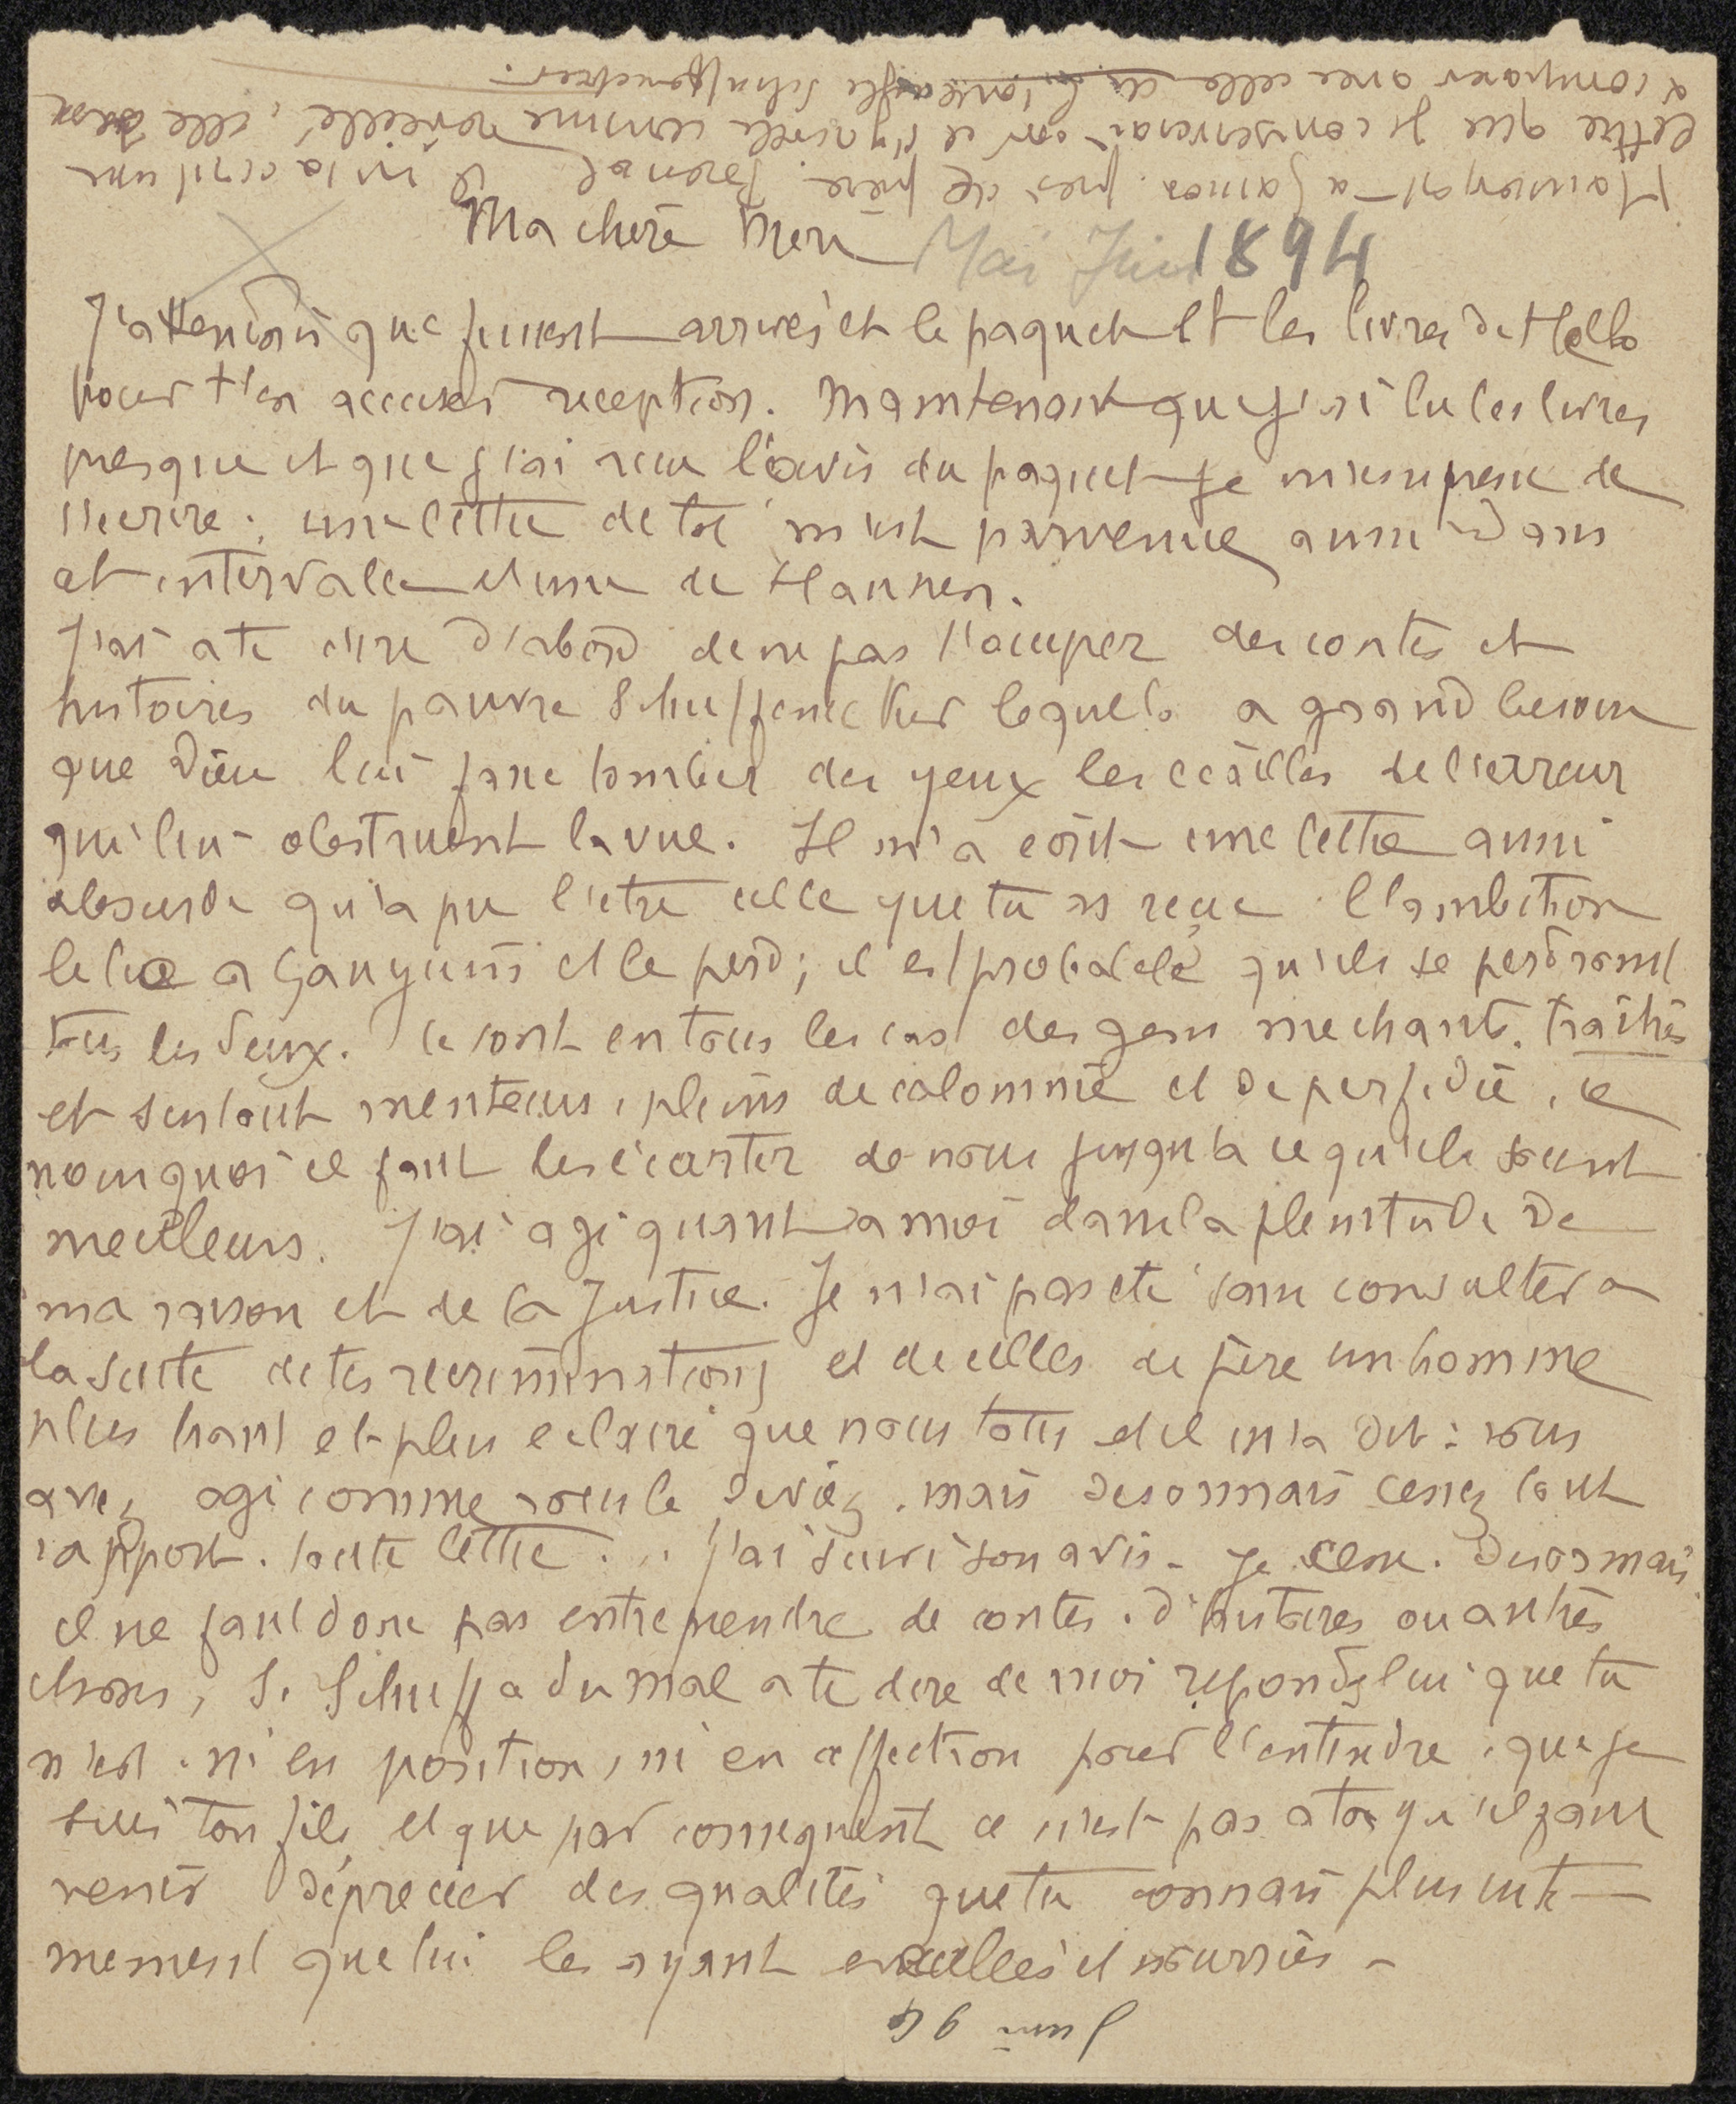 Ma chère Mère Mai Juin 1894
J'attendais que fussent arrivés et le paquet et les livres de Hello
pour t'en accuser reception. Maintenant que j'ai lu les livres
presque et que j'ai recu l'avis du paquet je m'empresse de
t'ecrire; une lettre de toi m'est parvenue aussi dans
cet intervalle et une de
J'ai a te dire d'abord de ne pas t'occuper des contes et
histoires du pauvre Schuffenecker lequel a grand besoin
que Dieu lui fasse tomber des yeux les écailles de l'erreur
qui lui obstruent la vue. Il m'a écrit une lettre aussi
absurde qu'a pu l'etre celle que tu as reçue. l'ambition
le lie a Gauguin et le perd; il est probable qu'ils se perdront
tous les deux. Ce sont en tous les cas des gens mechants, traitres
et surtout menteurs, pleins de calomnie et de perfidie, ce
pourquoi il faut les écarter de nous jusqu'a ce qu'ils soient
meilleurs. J'ai agi quant a moi dans la plenitude de
ma raison et de la Justice. Je n'ai pas ete sans consulter a
la suite de tes recriminations et de celles de père un homme
plus haut et plus eclairé que nous tous et il m'a dit: vous
avez agi comme vous le deviez, mais desormais cessez tout
rapport, toute lettre... j'ai suivi son avis - je cesse. Desormais
il ne faut donc pas entreprendre de contes, d'histoires ou autres
choses, Si Schuff a du mal a te dire de moi reponds lui que tu
n'est, ni en position, ni en affection pour l'entendre, que je
suis ton fils et que par consequent ce n'est pas a toi qu'il faut
venir déprecier des qualités que tu connais plus inti-
mement que lui les ayant et nourries -
Juin 94
est a Gamos près de père. Bernard le lui a ecrit une
lettre que je conserverai car il s'y révèle comme elle
a comparer avec celle de Schuffenecker.